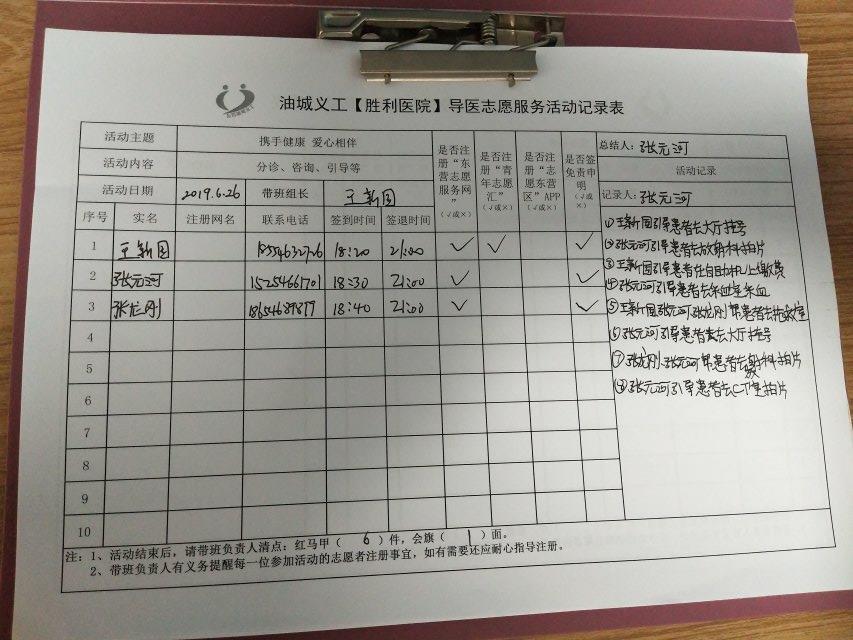 油城义工【胜利医院】导医志愿服务活动记录表
活动主题 携手健康 爱心相伴
活动内容 分诊、咨询、引导等
活动日期 2019.6.26 带班组长 王新国
序号 实名 注册网名 联系电话 签到时间 签退时间 是否注册“东营志愿服务网”(√或×) 是否注册“青年志愿汇”(√或×) 是否注册“志愿东营区”APP(√或×) 是否签免责申明(√或×)
1 王新国 18:20 21:00 √ √ √
2 张元河 15254661701 18:30 21:00 √ √
3 张龙刚 18654689877 18:40 21:00 √ √
4
5
6
7
8
9
10
总结人：张元河
活动记录
记录人：张元河
①王新国引导患者去大厅挂号
②张元河引导患者去放射科拍片
③王新国引导患者在自助机上缴费
④张元河引导患者去采血室采血
⑤王新国张元河张龙刚帮患者去抢救室
⑥张元河引导患者去大厅挂号
⑦张龙刚、张元河帮患者去放射科拍片
⑧张元河引导患者去CT室拍片
注：1、活动结束后，请带班负责人清点：红马甲（ 6 ）件，会旗（ 1 ）面。
2、带班负责人有义务提醒每一位参加活动的志愿者注册事宜，如有需要还应耐心指导注册。